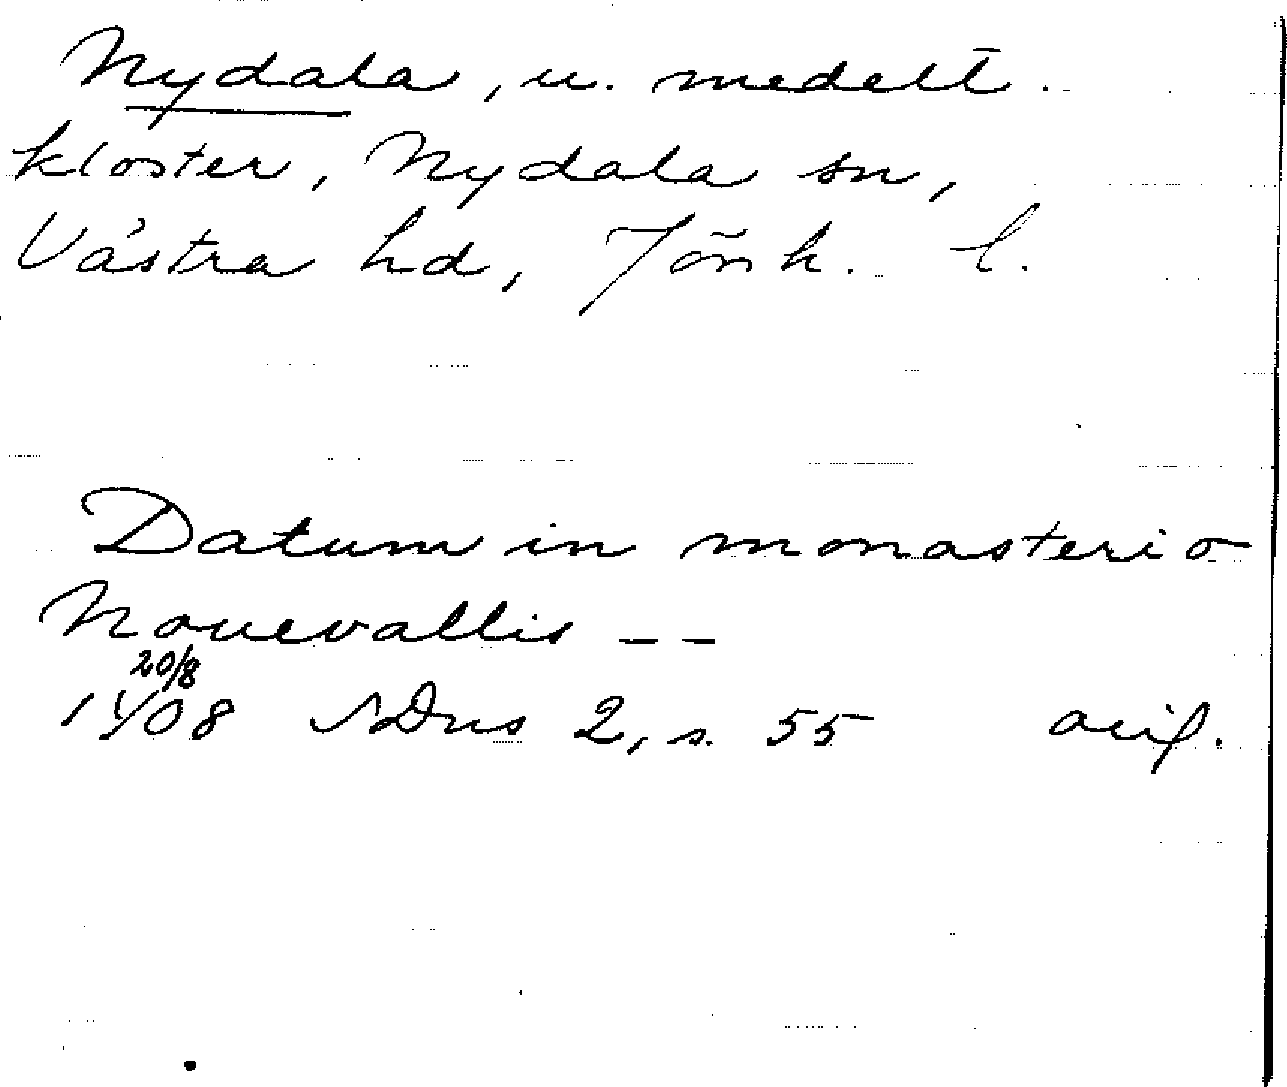 Nydala, u. medelt.
kloster, Nydala sn,
Västra hd, Jönk. l.
Datum in monasterio
Nouevallis --
20/8
1408 SDns 2, s. 55 avil.